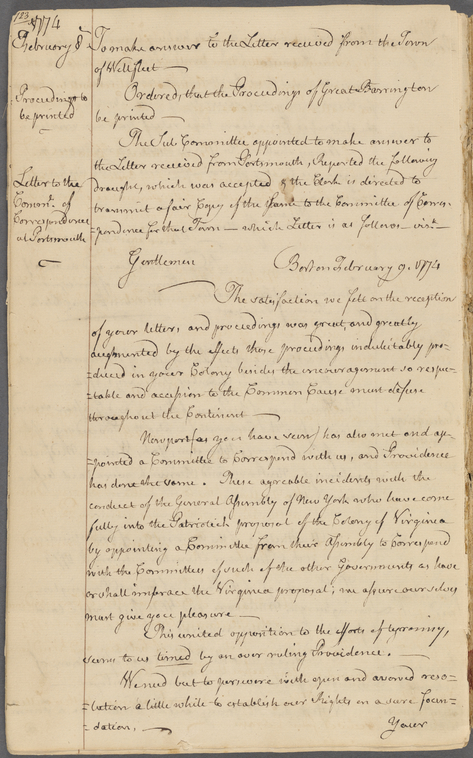 123
1774
February 8
To make answer to the Letter received from the Town
of Wellfleet —
Proceedings to
be printed
Ordered, that the Proceedings of Great Barrington
be printed —
The Sub Committee appointed to make answer to
the Letter received from Portsmouth, Reported the following
Letter to the
Commte. of
Correspondence
at Portsmouth
draught, which was accepted & the Clerk is directed to
transmit a fair Copy of the same to the Committee of Corres-
pondence for that Town — which Letter is as follows vizt.
Gentlemen Boston February 9. 1774
The satisfaction we felt on the reception
of your letters, and proceedings was great, and greatly
augmented by the effects those proceedings indubitably pro-
=duced in your Colony besides the encouragement so respec-
=table and accession to the Common Cause must defuse
throughout the Continent —
Newport (as you have seen) has also met and ap-
=pointed a Committee to Correspond with us, and Providence
has done the same. These agreable incidents with the
conduct of the General Assembly of New York who have come
fully into the Patriotick proposal of the Colony of Virginia
by appointing a Committee from their Assembly to Correspond
with the Committees of such of the other Governments as have
or shall imbrace the Virginia proposal; we assure ourselves
must give you pleasure —
This united opposition to the efforts of tyranny,
seems to us timed by an over ruling Providence.
We need but to persevere with open and avowed reso-
=lution a little while to establish our Rights on a sure foun-
=dation. —
Your